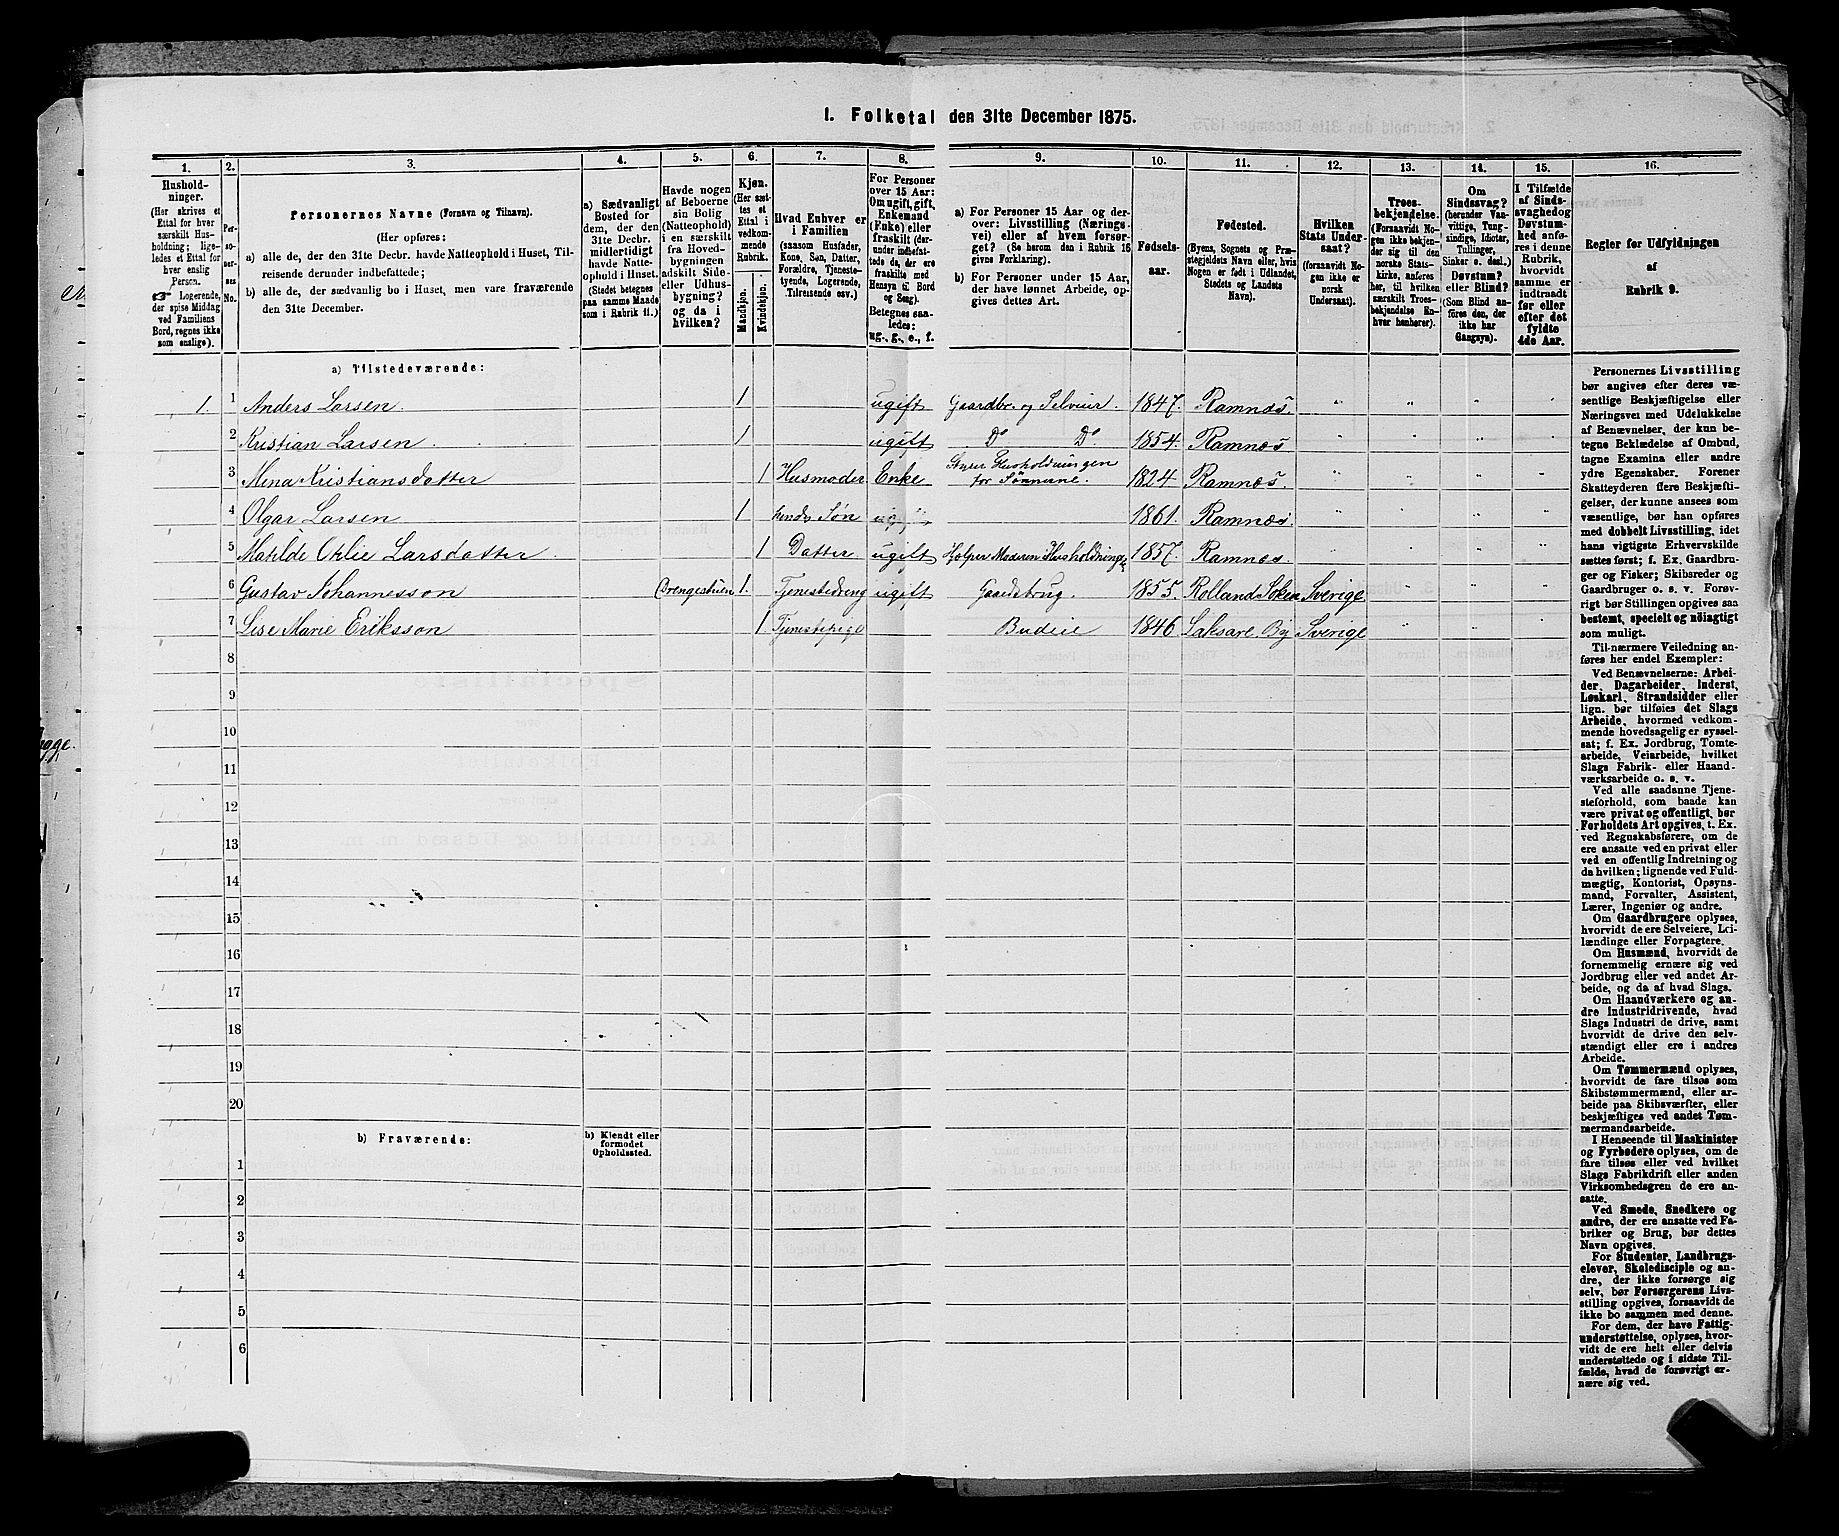 1. Folketal den 31te December 1875.
1.
2.
3.
4.
5.
6.
7.
8.
9.
10.
11.
12.
13.
14.
15.
16.
Hushold-
ninger.
(Her skrives et
Ettal for hver
særskilt Hus-
holdning; lige-
ledes et Ettal for
hver enslig
Person.
☞ Logerende,
der spise Middag
ved Familiens
Bord, regnes ikke
som enslige).
Per-
so-
ner-
nes
No.
Personernes Navne (Fornavn og Tilnavn).
(Her opføres:
a) alle de, der den 31te Decbr. havde Natteophold i Huset, Til-
reisende derunder indbefattede;
b) alle de, der sædvanlig bo i Huset, men vare fraværende
den 31te December.
a) Sædvanligt
Bosted for
dem, der den
31te Decbr.
midlertidigt
havde Natte-
ophold i Huset.
(Stedet betegnes
paa samme Maade
som i Rubrik 11.)
Havde nogen
af Beboerne
sin Bolig
(Natteophold)
i en særskilt
fra Hoved-
bygningen
adskilt Side-
eller Udhus-
bygning?
og da i
hvilken?
Kjøn.
(Her sæt-
tes et
Ettal i
vedkom-
mende
Rubrik.
Mandkjøn.
Kvindekjøn.
Hvad Enhver er
i Familien
(saasom Husfader,
Kone, Søn, Datter,
Forældre, Tjeneste-
tyende, Logerende,
Tilreisende osv.)
For Personer
over 15 Aar:
Om ugift, gift,
Enkemand
(Enke) eller
fraskilt (der-
under indbefat-
tede de, der ere
fraskilte med
Hensyn til Bord
og Seng).
Betegnes saa-
ledes:
ug., g., e., f.
a) For Personer 15 Aar og der-
over: Livsstilling (Nærings-
vei) eller af hvem forsør-
get? (Se herom den i Rubrik 16
givne Forklaring).
b) For Personer under 15 Aar,
der have lønnet Arbeide, op-
gives dettes Art.
Fødsels-
aar.
Fødested.
(Byens, Sognets og Præ-
stegjeldets Navn eller, hvis
Nogen er født i Udlandet,
Stedets og Landets
Navn).
Hvilken
Stats Under-
saat?
(forsaavidt No-
gen ikke er
norsk
Undersaat).
Troes-
bekjendelse.
(Forsaavidt No-
gen ikke bekjen-
der sig til den
norske Stats-
kirke, anføres
her, til hvilken
særskilt Troes-
bekjendelse En-
hver henhører).
Om
Sindssvag?
(herunder Van-
vittige, Tung-
sindige, Idioter,
Tullinger,
Sinker o. desl.)
Døvstum?
eller Blind?
(Som Blind an-
føres den, der
ikke har
Gangsyn).
I Tilfælde
af Sinds-
svaghed og
Døvstum-
hed anfø-
res i denne
Rubrik,
hvorvidt
samme er
indtraadt
før eller
efter det
fyldte
4de Aar.
Regler for Udfyldningen
af
Rubrik 9.
a) Tilstedeværende:
1. 1 Anders Larsen. 1 ugift Gaardbr. og Selveier. 1847. Ramnæs. " " " "
2 Kristian Larsen. 1 ugift Do Do 1854. Ramnæs " " " "
3 Mina Kristiansdatter 1 Husmoder Enke Styrer Husholdningen
for Sønnerne. 1824 Ramnæs. " " " "
4 Olgar Larsen 1 hendes Søn 1861. Ramnæs. " " " "
5 Matilde Otilie Larsdatter. 1 Datter. ugift Hjælper Moderen i Husholdningen 1857. Ramnæs. " " " "
6 Gustav Johannesson (Drengestuen) 1. Tjenestedreng ugift Gaardsbrug. 1855. Rolland Soken Sverige. " " "
7 Lise Marie Eriksson 1 Tjenestepige Budeie 1846 Laksare By Sverige " " "
8
9
10
11
12
13
14
15
16
17
18
19
20
b) Fraværende:
b) Kjendt eller
formodet
Opholdssted.
1
2
3
4
5
6
Personernes Livsstilling
bør angives efter deres væ-
sentlige Beskjæftigelse eller
Næringsvei med Udelukkelse
af Benævnelser, der kun be-
tegne Beklædelse af Ombud,
tagne Examina eller andre
ydre Egenskaber. Forener
Skatteyderen flere Beskjæfti-
gelser, der kunne ansees som
væsentlige, bør han opføres
med dobbelt Livsstilling, idet
hans vigtigste Erhvervskilde
sættes først; f. Ex. Gaardbru-
ger og Fisker; Skibsreder og
Gaardbruger o. s. v. Forøv-
rigt bør Stillingen opgives saa
bestemt, specielt og nøiagtigt
som muligt.
Til nærmere Veiledning an-
føres her endel Exempler:
Ved Benævnelserne: Arbei-
der, Dagarbeider, Inderst,
Løskarl, Strandsidder eller
lign. bør tilføies det Slags
Arbeide, hvormed vedkom-
mende hovedsagelig er syssel-
sat; f. Ex. Jordbrug, Tomte-
arbeide, Veiarbeide, hvilket
Slags Fabrik- eller Haand-
værksarbeide o. s. v.
Ved alle saadanne Tjene-
steforhold, som baade kan
være privat og offentligt, bør
Forholdets Art opgives, t. Ex.
ved Regnskabsførere, om de
ere ansatte ved en privat eller
ved en offentlig Indretning og
da hvilken; lignende ved Fuld-
mægtig, Kontorist, Opsyns-
mand, Forvalter, Assistent,
Lærer, Ingeniør og andre.
Om Gaardbrugere oplyses,
hvorvidt de ere Selveiere, Lei-
lændinge eller Forpagtere.
Om Husmænd, hvorvidt de
fornemmelig ernære sig ved
Jordbrug eller ved andet Ar-
beide, og da af hvad Slags.
Om Haandværkere og an-
dre Industridrivende, hvad
Slags Industri de drive, samt
hvorvidt de drive den selv-
stændigt eller ere i andres
Arbeide.
Om Tømmermænd oplyses,
hvorvidt de fare tilsøs som
Skibstømmermænd, eller ar-
beide paa Skibsværfter, eller
beskjæftiges ved andet Tøm-
mermandsarbeide.
I Henseende til Maskinister
og Fyrbødere oplyses, om de
fare tilsøs eller ved hvilket
Slags Fabrikdrift eller anden
Virksomhedsgren de ere an-
satte.
Ved Smede, Snedkere og
andre, der ere ansatte ved Fa-
briker og Brug, bør dettes
Navn opgives.
For Studenter, Landbrugs-
elever, Skoledisciple og an-
dre, der ikke forsørge sig
selv, bør Forsørgerens Livs-
stilling opgives, forsaavidt de
ikke bo sammen med denne.
For dem, der have Fattig-
understøttelse, oplyses, hvor-
vidt de ere helt eller delvis
understøttede og i sidste Til-
fælde, hvad de forøvrigt er-
nære sig ved.